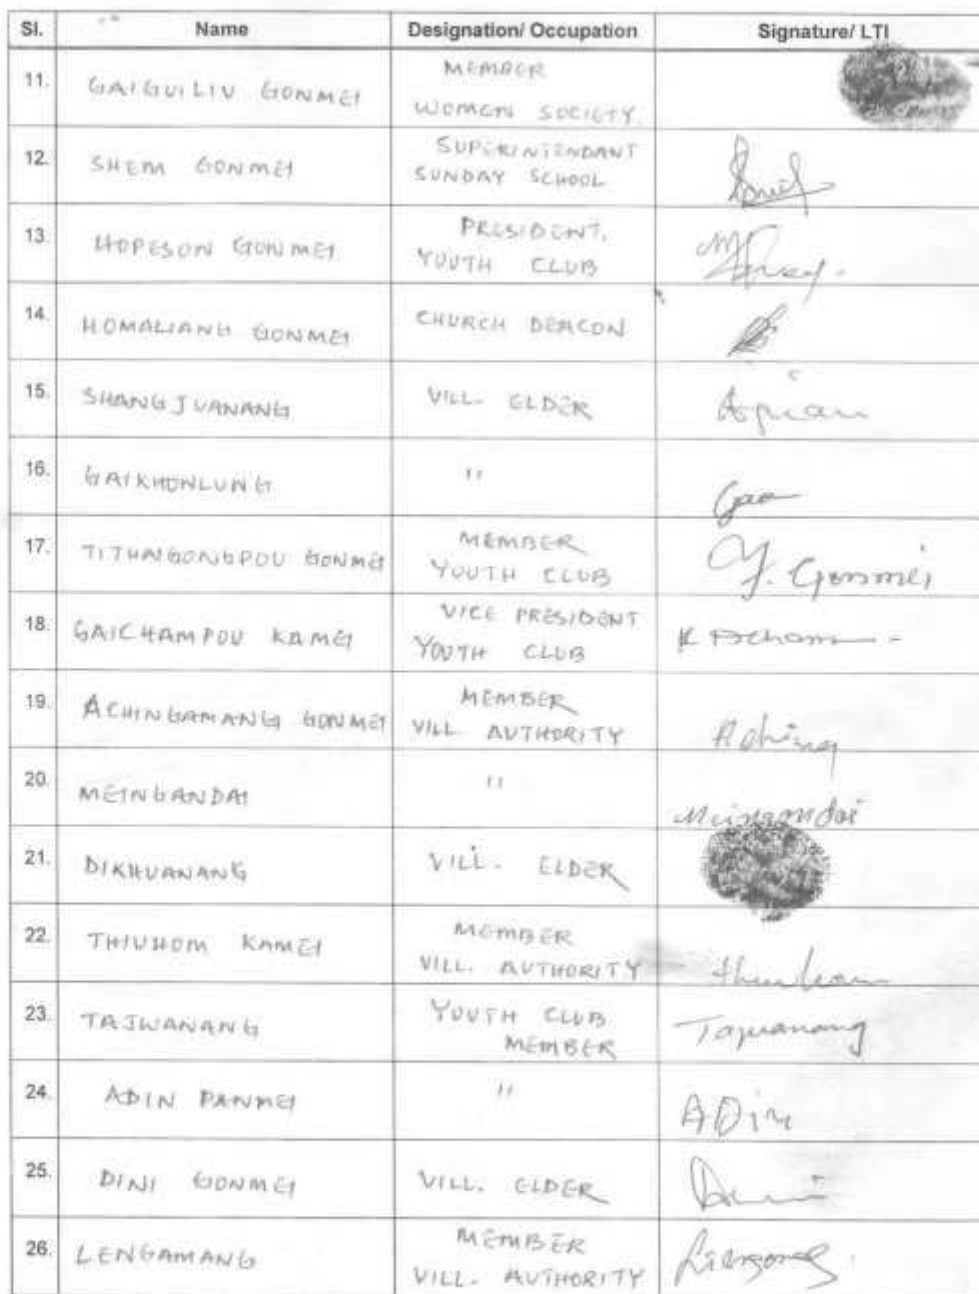 Sl. Name Designation/ Occupation Signature/ LTI
11. GAIGUILIU GONMEI MEMBER
WOMEN SOCIETY.
12. SHEM GONMEI SUPERINTENDANT
SUNDAY SCHOOL
13. HOPESON GONMEI PRESIDENT,
YOUTH CLUB
14. HOMALIANG GONMEI CHURCH DEACON
15. SHANGJUANANG VILL. ELDER
16. GAIKHONLUNG "
Gae
17. TITHAIGONGPOU GONMEI MEMBER
YOUTH CLUB
Y. Gonmei
18. GAICHAMPOU KAMEI VICE PRESIDENT
YOUTH CLUB
19. ACHINGAMANG GONMEI MEMBER
VILL. AUTHORITY
Aching
20. MEINGANDAI "
Meingandai
21. DIKHUANANG VILL. ELDER
22. THIUHOM KAMEI MEMBER
VILL. AUTHORITY
23. TAJUANANG YOUTH CLUB
MEMBER
Tajuanang
24. ADIN PANMEI "
ADin
25. DINI GONMEI VILL. ELDER
26. LENGAMANG MEMBER
VILL. AUTHORITY